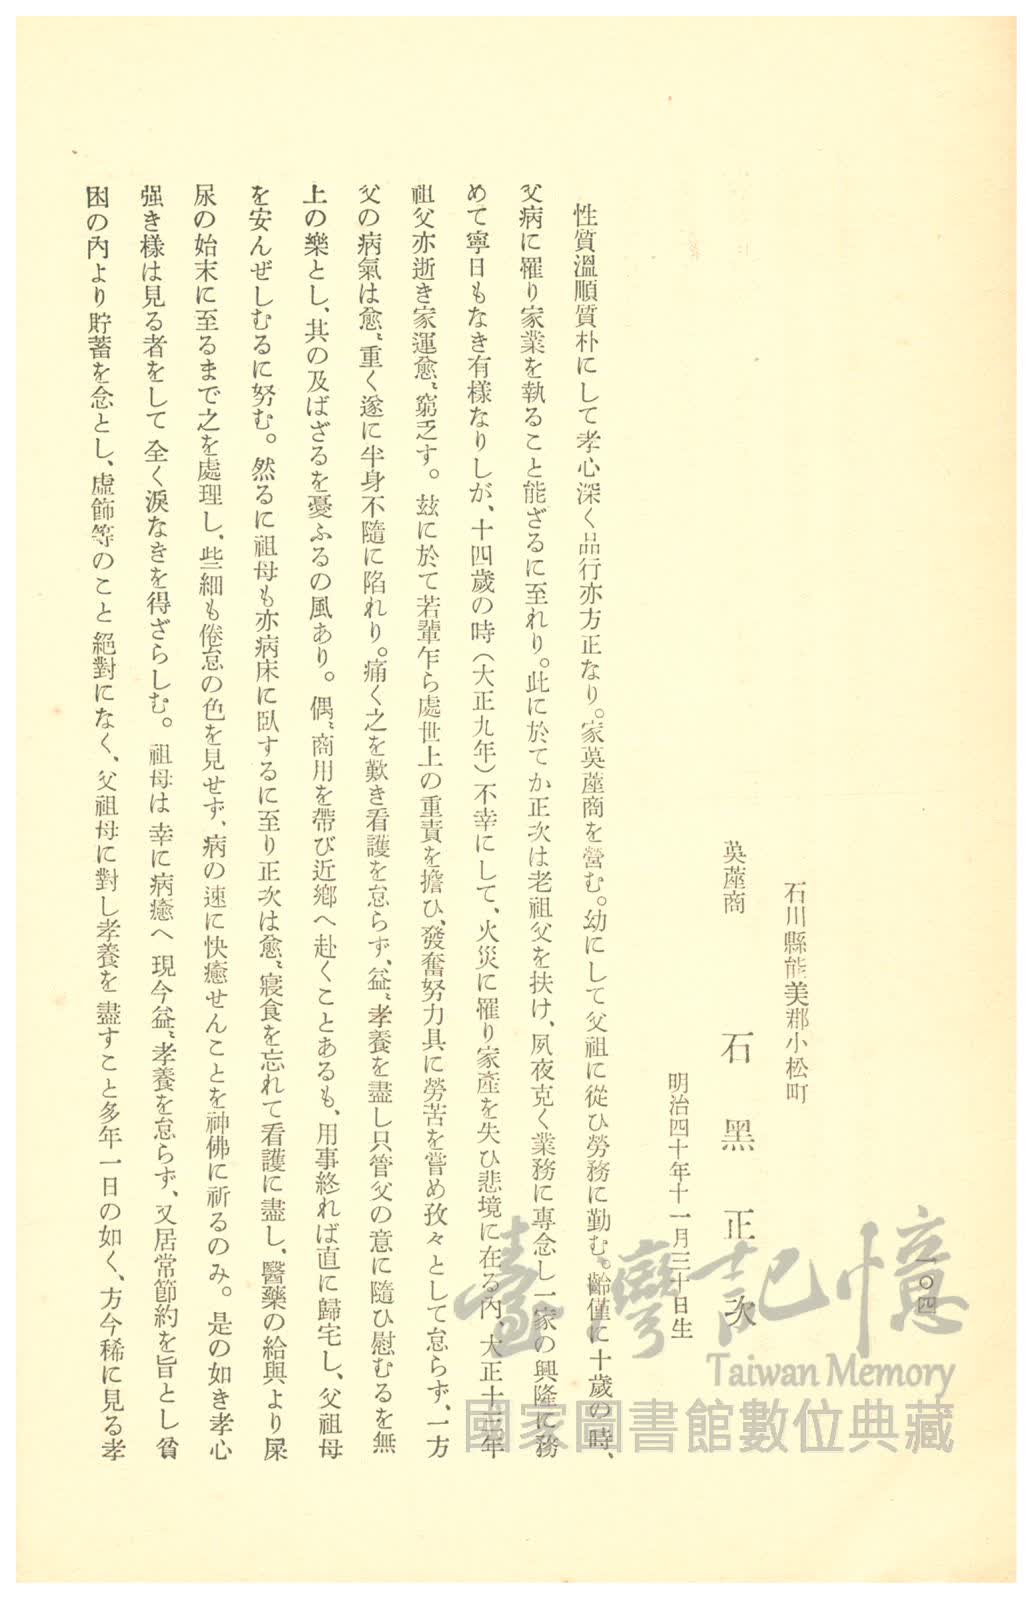 一〇四
石川縣能美郡小松町
茣蓙商　石黑正次
明治四十年十一月三十日生
性質溫順質朴にして孝心深く品行亦方正なり。家茣蓙商を營む。幼にして父祖に從ひ勞務に勤む。齡僅に十歲の時、
父病に罹り家業を執ること能ざるに至れり。此に於てか正次は老祖父を扶け、夙夜克く業務に專念し一家の興隆に務
めて寧日もなき有樣なりしが、十四歲の時（大正九年）不幸にして、火災に罹り家產を失ひ悲境に在る內、大正十三年
祖父亦逝き家運愈〻窮乏す。玆に於て若輩乍ら處世上の重責を擔ひ、發奮努力具に勞苦を嘗め孜々として怠らず、一方
父の病氣は愈〻重く遂に半身不隨に陷れり。痛く之を歎き看護を怠らず、益〻孝養を盡し只管父の意に隨ひ慰むるを無
上の樂とし、其の及ばざるを憂ふるの風あり。偶〻商用を帶び近鄕へ赴くことあるも、用事終れば直に歸宅し、父祖母
を安んぜしむるに努む。然るに祖母も亦病床に臥するに至り正次は愈〻寢食を忘れて看護に盡し、醫藥の給與より屎
尿の始末に至るまで之を處理し、些細も倦怠の色を見せず、病の速に快癒せんことを神佛に祈るのみ。是の如き孝心
强き樣は見る者をして全く淚なきを得ざらしむ。祖母は幸に病癒へ現今益〻孝養を怠らず、又居常節約を旨とし貧
困の內より貯蓄を念とし、虛飾等のこと絕對になく、父祖母に對し孝養を盡すこと多年一日の如く、方今稀に見る孝
臺灣記憶
Taiwan Memory
國家圖書館數位典藏